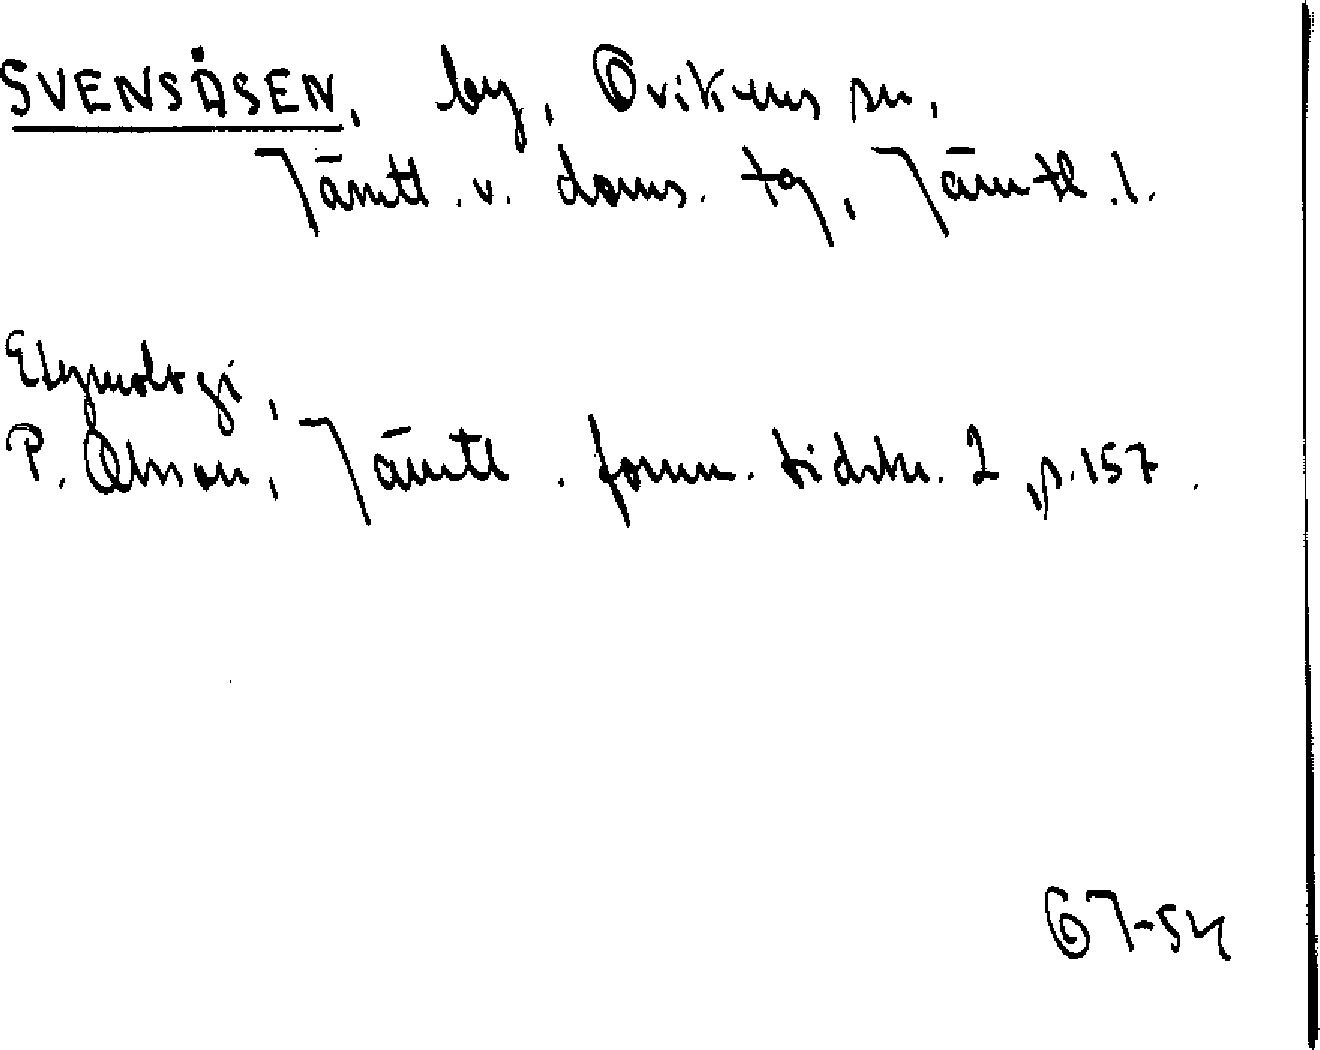 SVENSÅSEN, by, Ovikens sn,
Jämtl. v. doms. tg, Jämtl. l.
Etymologi,
P. Olsson, Jämtl. fornm. tidskr. 2, p. 157.
GJ-54